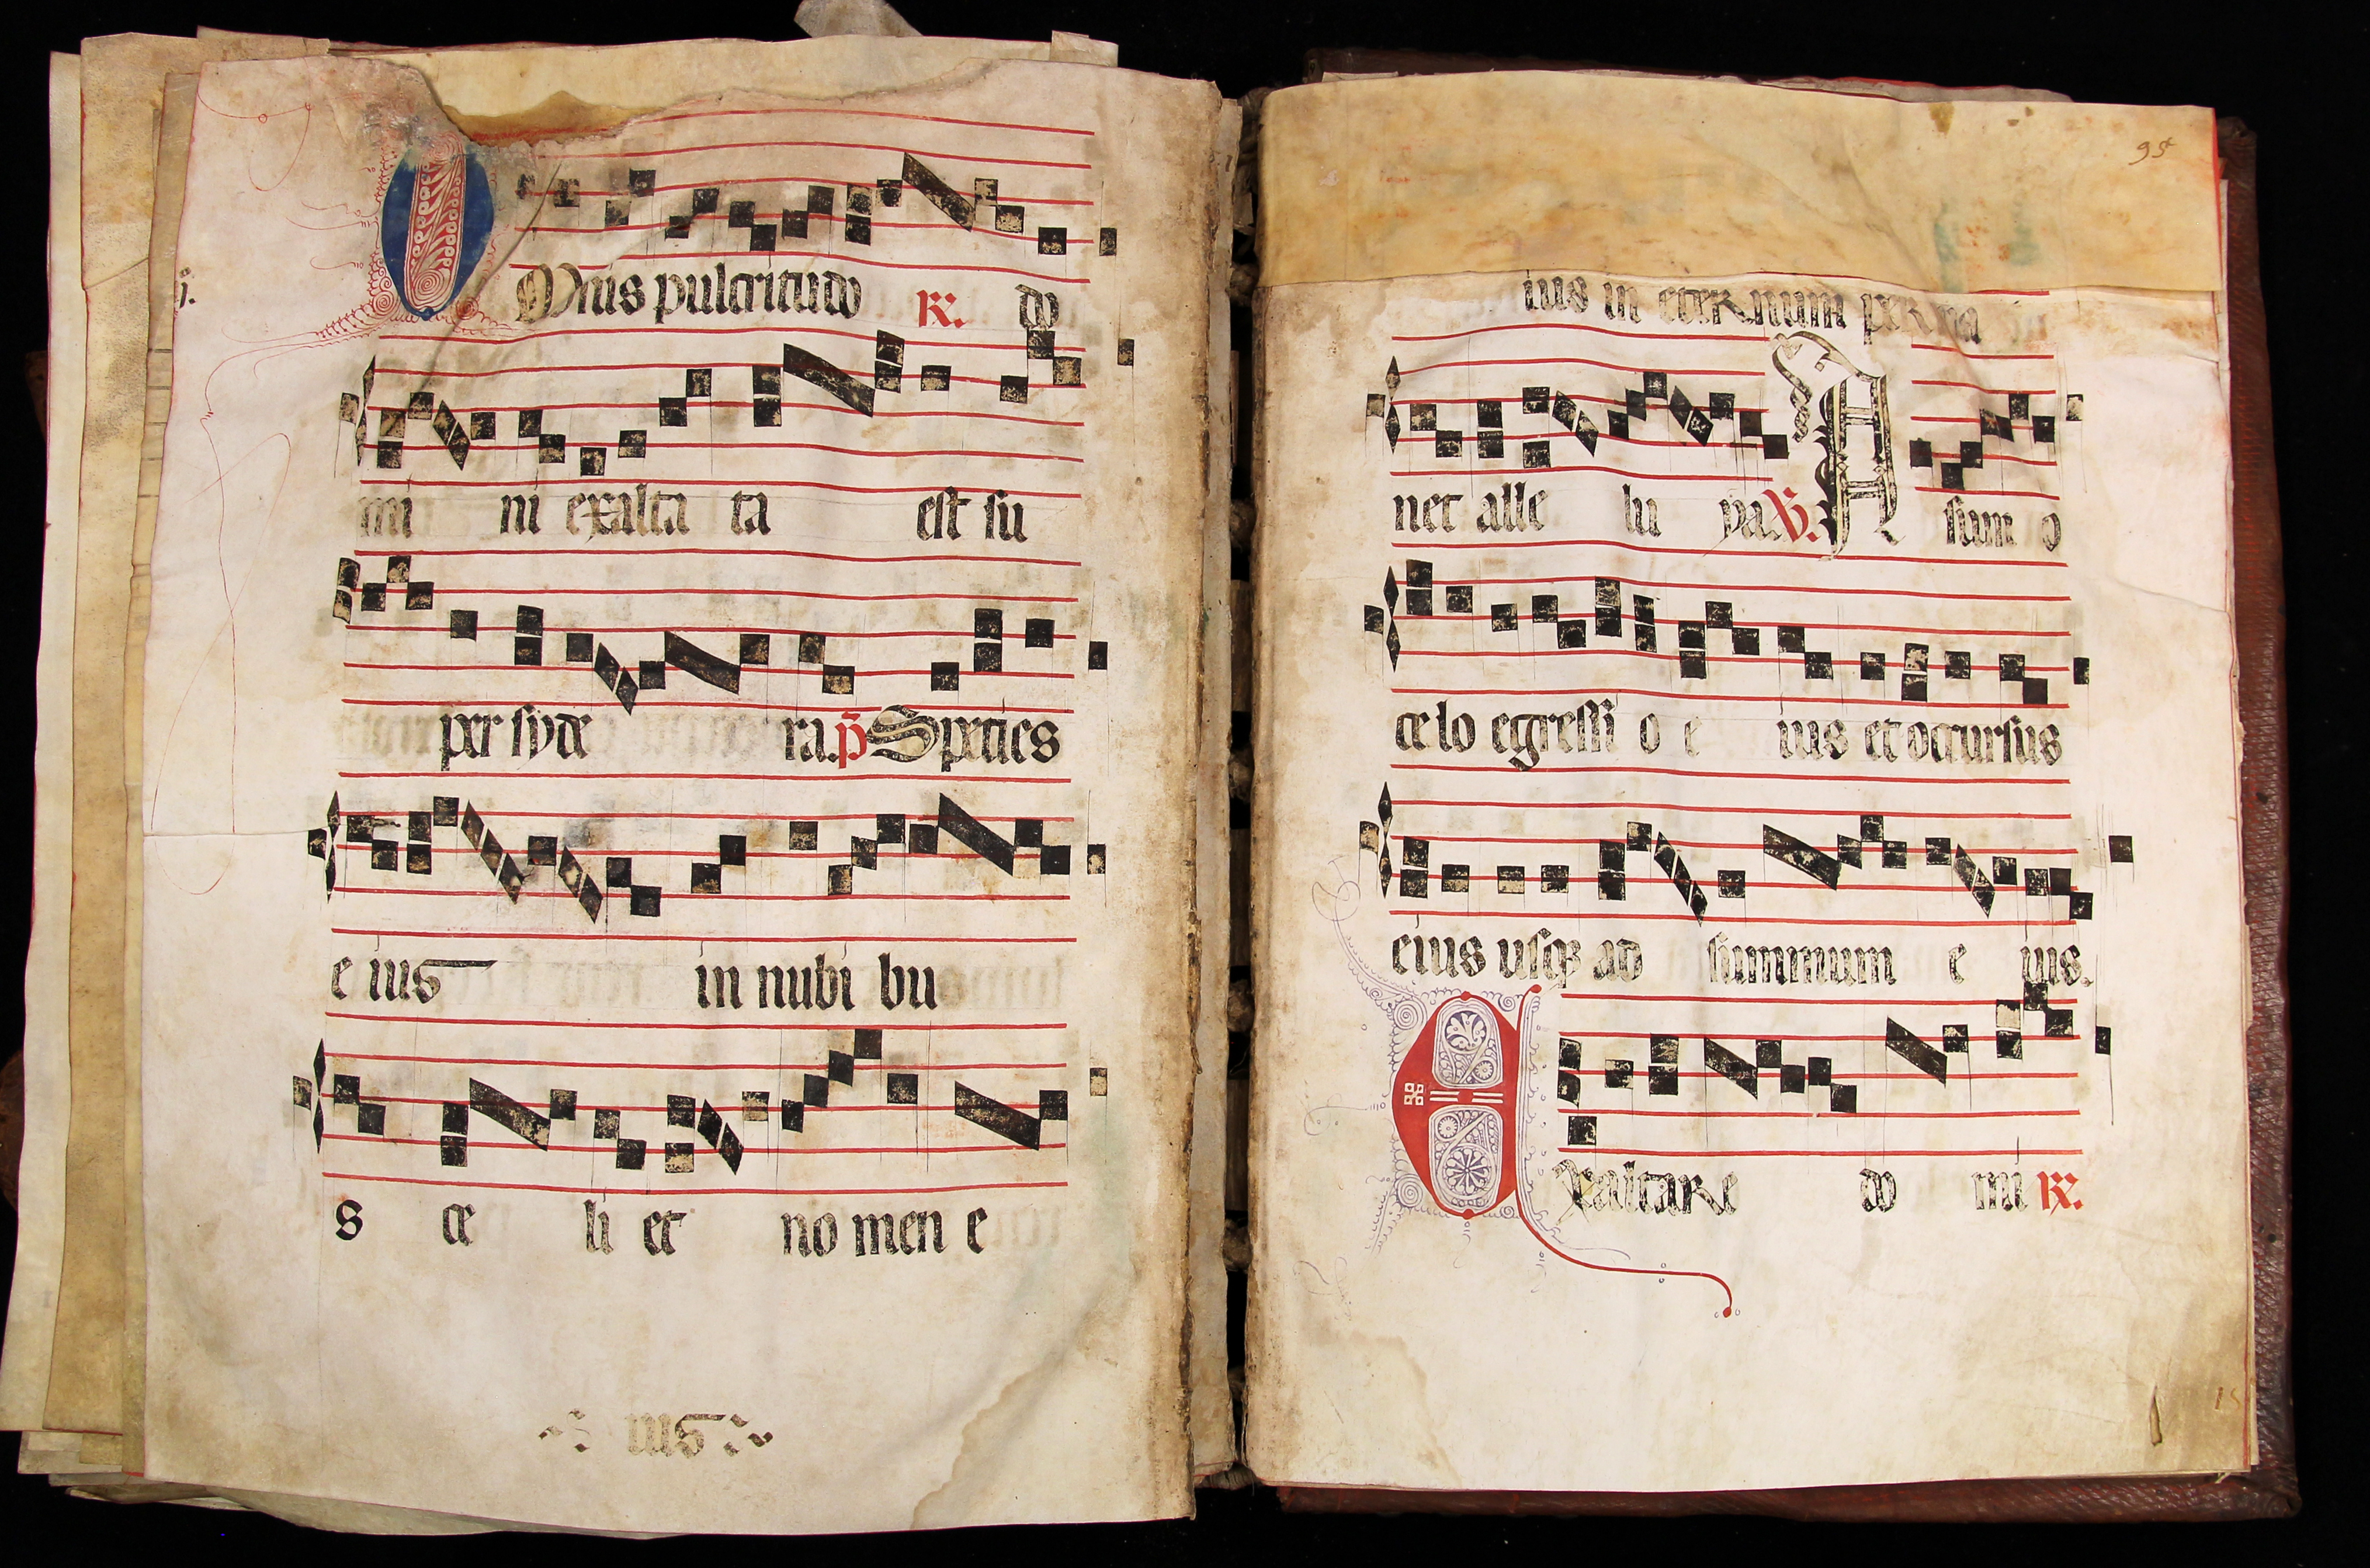 j.
Omnis pulcritudo ℟. do
mi ni exalta ta est su
per syde ra. p̃ Speties
e ius in nubi bu
s ce li et no men e
ius
95
ius in eternum perma
net alle lu ya ℣. A sum o
ce lo egressi o e ius et occursus
eius usqꝫ ad summum e ius.
Exaltare do mi ℟.
15